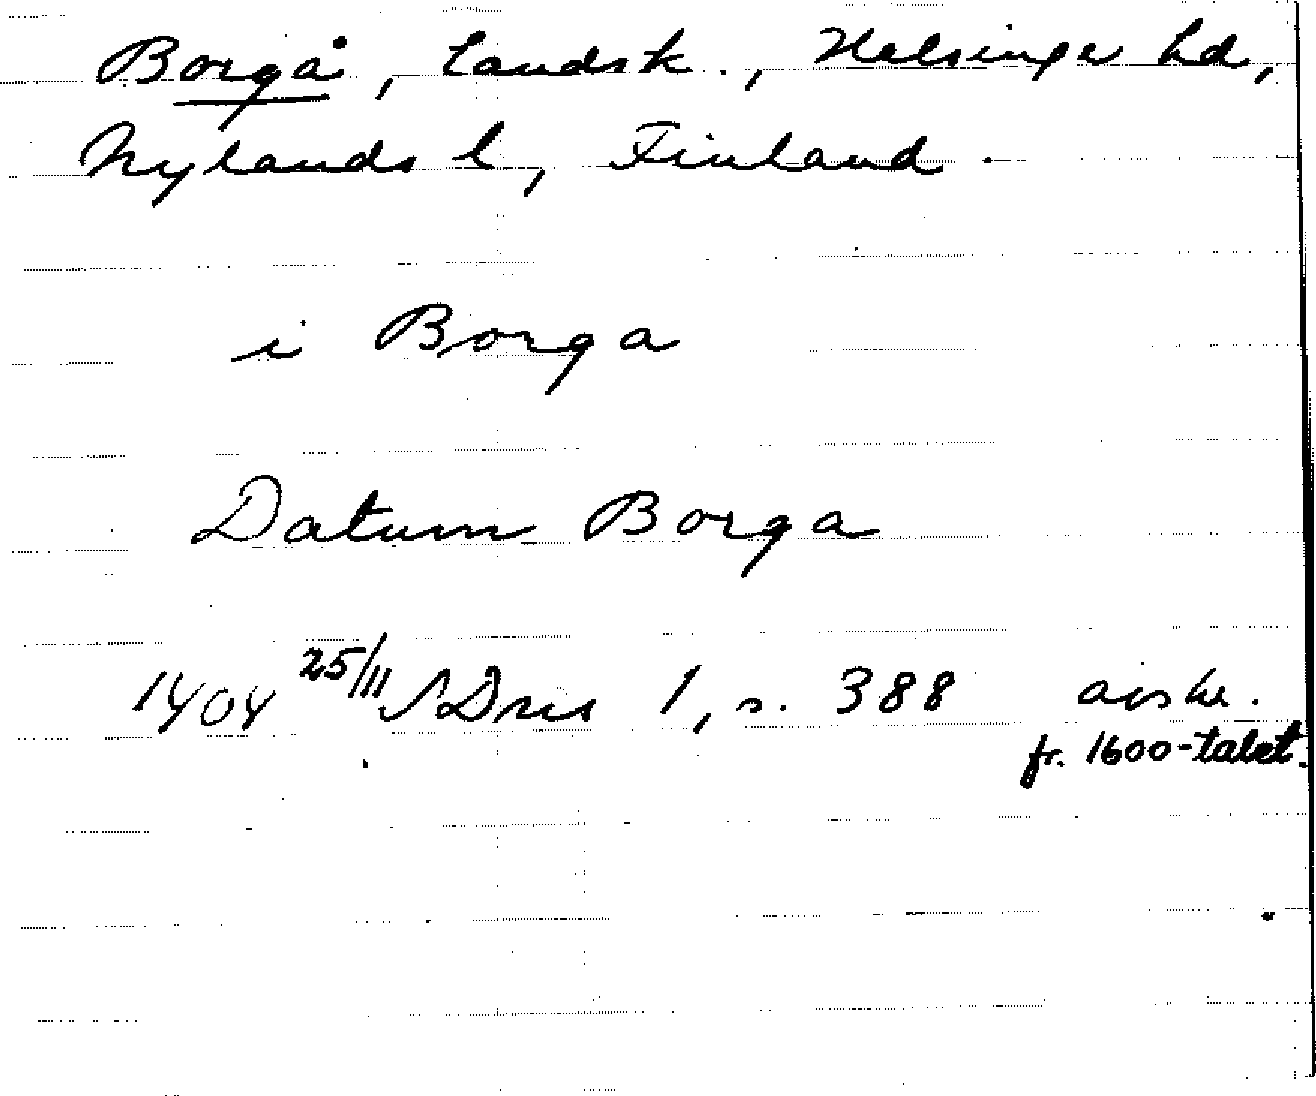 Borgå, Landsk., Helsinge hd,
Nylands l, Finland.
i Borga
Datum Borga
1404 25/11 SDns 1, s. 388 avskr.
fr. 1600-talet.